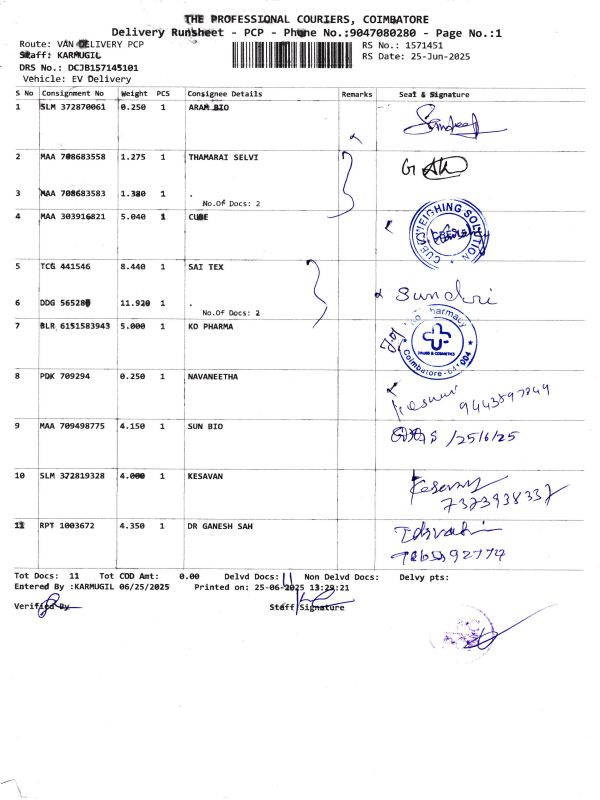 THE PROFESSIONAL COURIERS, COIMBATORE
Delivery Runsheet - PCP - Phone No.:9047080280 - Page No.:1
Route: VAN DELIVERY PCP
RS No.: 1571451
Staff: KARMUGIL
RS Date: 25-Jun-2025
DRS No.: DCJB157145101
Vehicle: EV Delivery
S No Consignment No Weight PCS Consignee Details Remarks Seal & Signature
1 SLM 372870061 0.250 1 ARAM BIO
2 MAA 708683558 1.275 1 THAMARAI SELVI
3 MAA 708683583 1.380 1 .
No.Of Docs: 2
4 MAA 303916821 5.040 1 CUBE
CUBE WEIGHING SOLUTION
5 TCG 441546 8.440 1 SAI TEX
Sundri
6 DDG 565280 11.920 1 .
No.Of Docs: 2
7 BLR 6151583943 5.000 1 KO PHARMA
Pharmacy
DRUGS & COSMETICS
Coimbatore - 641 004
8 PDK 709294 0.250 1 NAVANEETHA
9443597849
9 MAA 709498775 4.150 1 SUN BIO
/25/6/25
10 SLM 372819328 4.000 1 KESAVAN
Kesavan
7373938337
11 RPT 1003672 4.350 1 DR GANESH SAH
Tot Docs: 11 Tot COD Amt: 0.00 Delvd Docs: 11 Non Delvd Docs: Delvy pts:
Entered By :KARMUGIL 06/25/2025 Printed on: 25-06-2025 13:29:21
Verified By Staff Signature